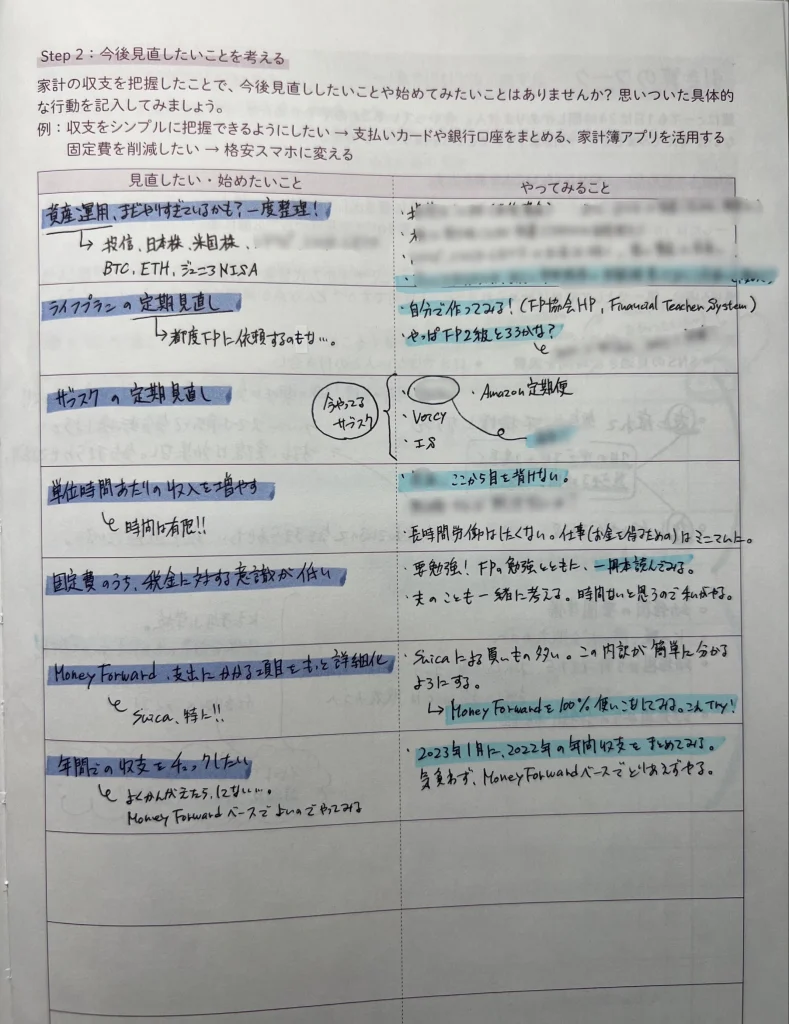 Step 2：今後見直したいことを考える
家計の収支を把握したことで、今後見直ししたいことや始めてみたいことはありませんか？ 思いついた具体的
な行動を記入してみましょう。
例：収支をシンプルに把握できるようにしたい → 支払いカードや銀行口座をまとめる、家計簿アプリを活用する
固定費を削減したい → 格安スマホに変える
見直したい・始めたいこと
やってみること
資産運用、まだやりすぎているかも？一度整理！
↳ 投信、日本株、米国株、
BTC, ETH, ジュニアNISA
ライフプランの定期見直し
↳ 都度FPに依頼するのもな…。
・自分で作ってみる！（FP協会HP, Financial Teacher System）
・やっぱFP2級とろかな？
サブスクの定期見直し
今やってる
サブスク
・Amazon定期便
・Voicy
単位時間あたりの収入を増やす
↳ 時間は有限!!
ここから目を背けない。
・長時間労働はしたくない。仕事（お金を得るための）はミニマムに。
固定費のうち、税金に対する意識が低い
・要勉強！FPの勉強とともに、一冊本読んでみる。
・夫のことも一緒に考える。時間ないと思うので私がやる。
Money Forward、支出にかかる項目をもっと詳細化
↳ Suica、特に!!
・Suicaによる買いもの多い。この内訳が簡単に分かる
ようにする。
↳ Money Forwardを100%使いこなしてみる。これTry!
年間での収支をチェックしたい
↳ よくかんがえたら、してない…。
Money Forwardベースでよいのでやってみる
・2023年1月に、2022年の年間収支をまとめてみる。
気負わず、Money Forwardベースでとりあえずやる。